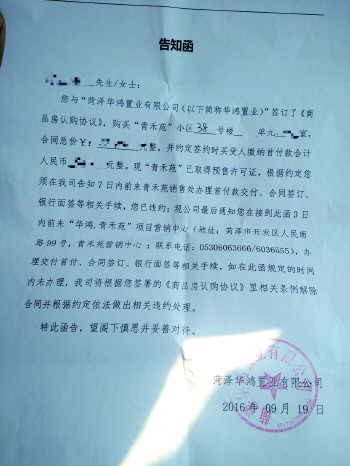 告知函
先生/女士：
您与“菏泽华鸿置业有限公司（以下简称华鸿置业）”签订了《商
品房认购协议》，购买“青禾苑”小区38号楼 单元 室，
合同总价￥： 元整，并约定签约时买受人缴纳首付款合计
人民币 元整。现“青禾苑”已取得预售许可证，根据约定您
须在我司告知7日内前来青禾苑销售处办理首付款交付、合同签订、
银行面签等相关手续，您已违约；现公司最后通知您在接到此函3日
内前来“华鸿.青禾苑”项目营销中心（地址：菏泽市开发区人民南
路99号，青禾苑营销中心；联系电话：05306063666/6036555），办
理交付首付、合同签订、银行面签等相关手续，如在此函规定的时间
内未办理，我司将根据您签署的《商品房认购协议》里相关条例解除
合同并根据约定依法做出相关违约处理。
特此函告，望阁下慎思并妥善对待。
菏泽华鸿置业有限公司
2016年09月19日